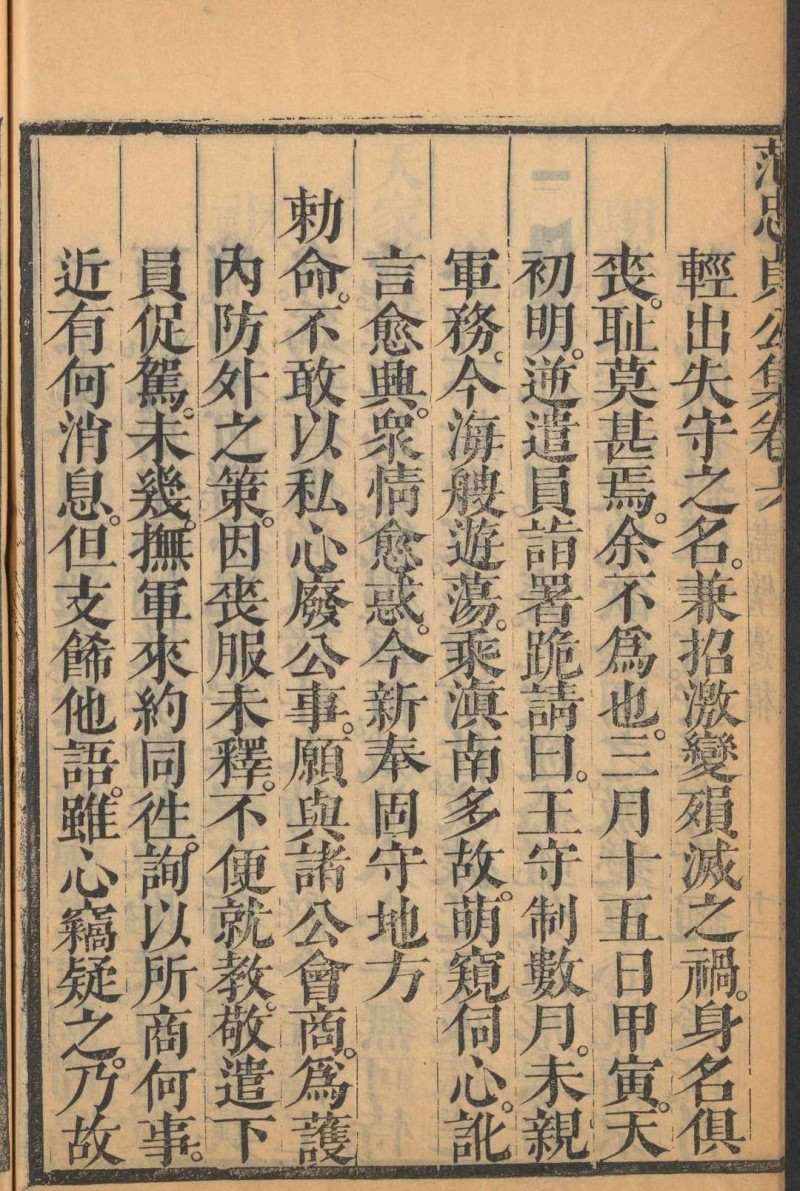 范忠貞公集卷六
輕出失守之名。兼招激變殞滅之禍。身名俱
喪。耻莫甚焉。余不爲也。三月十五日甲寅。天
初明。逆遣員詣署跪請曰。王守制數月。未親
軍務。今海艘遊蕩。乘滇南多故。萌窺伺心。訛
言愈興。衆情愈惑。今新奉固守地方
勅命。不敢以私心廢公事。願與諸公會商。爲護
內防外之策。因喪服未釋。不便就教。敬遣下
員促駕。未幾。撫軍來約同徃。詢以所商何事。
近有何消息。但支餙他語。雖心竊疑之。乃故